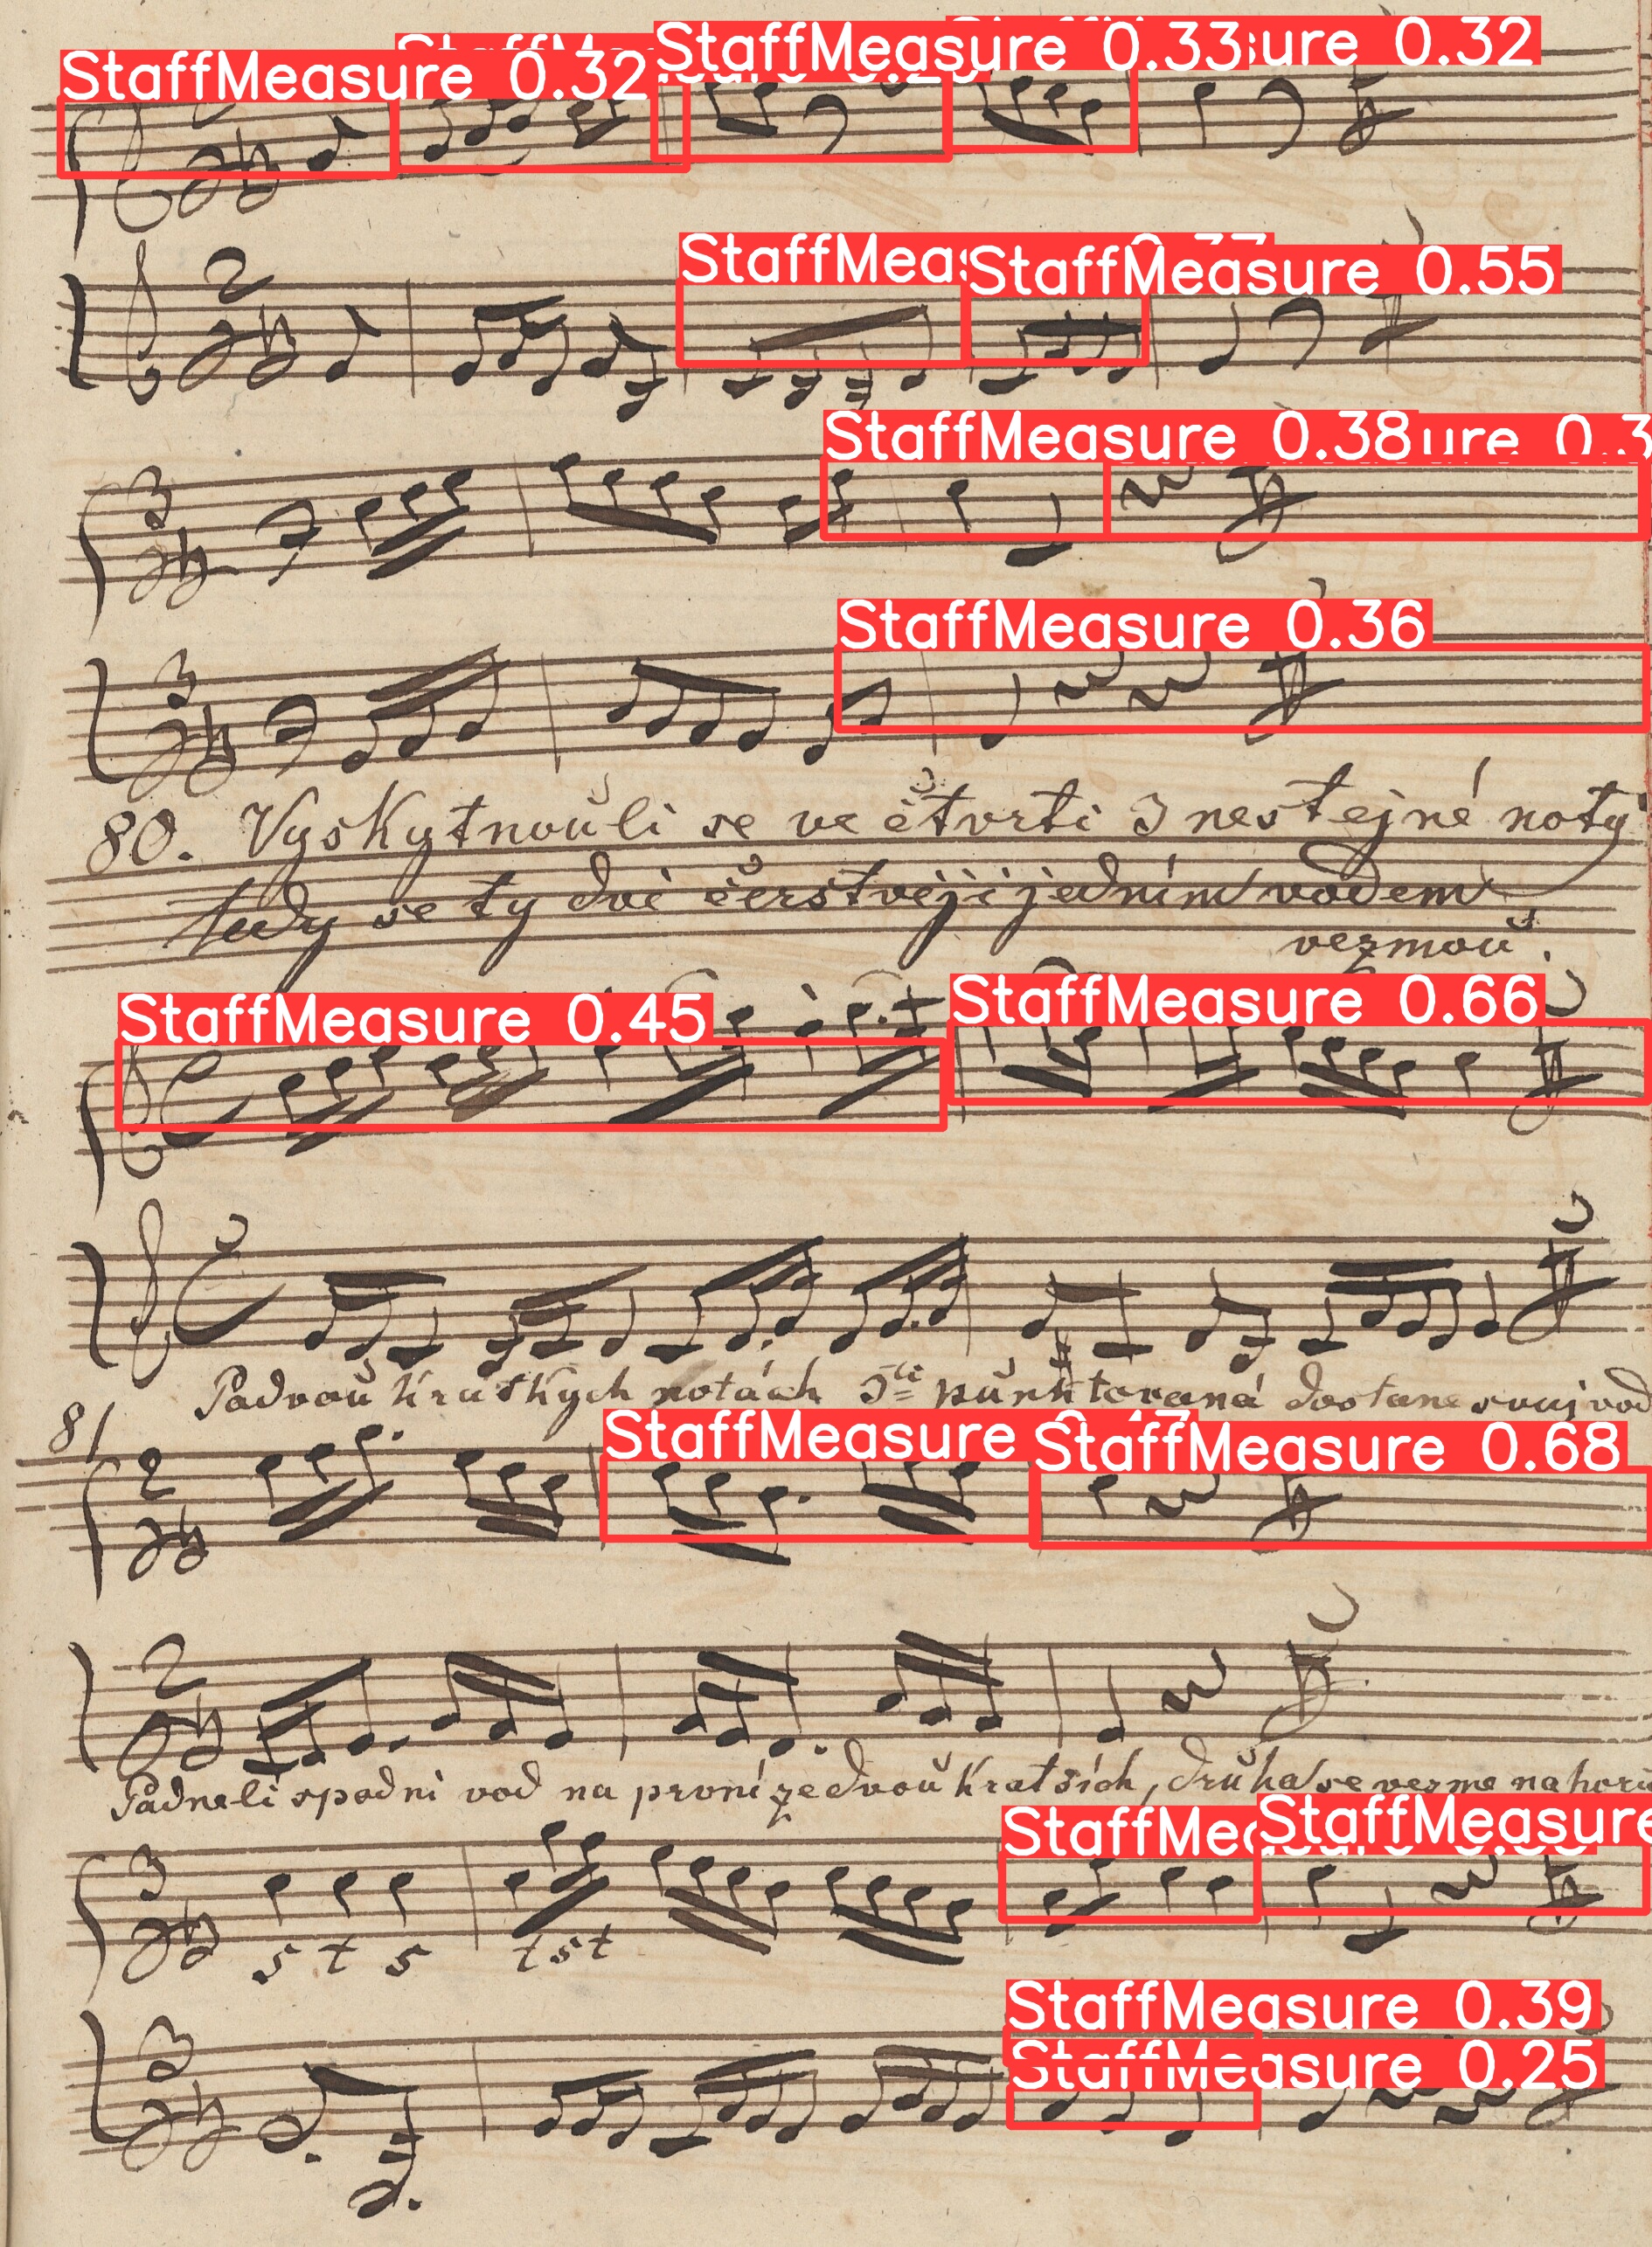 StaffMeasure 0.32 StaffMeasure 0.33 sure 0.32
2
StaffMeas StaffMeasure 0.55
3
StaffMeasure 0.38 ure 0.3
StaffMeasure 0.36
3
80. Vyskytnouli se ve čtvrti 3 nestejné noty
tedy se ty dvě čerstvěji jedním vodem
vezmou.
StaffMeasure 0.45 StaffMeasure 0.66
Padvou kruškych notách 3tí punktovaná dostane svuj vod
81
StaffMeasure StaffMeasure 0.68
2
2
Padneli spodni vod na první ze dvou kratších, druha se vezme nahoru
StaffMea StaffMeasure
3
s t s t s t
StaffMeasure 0.39
3
StaffMeasure 0.25